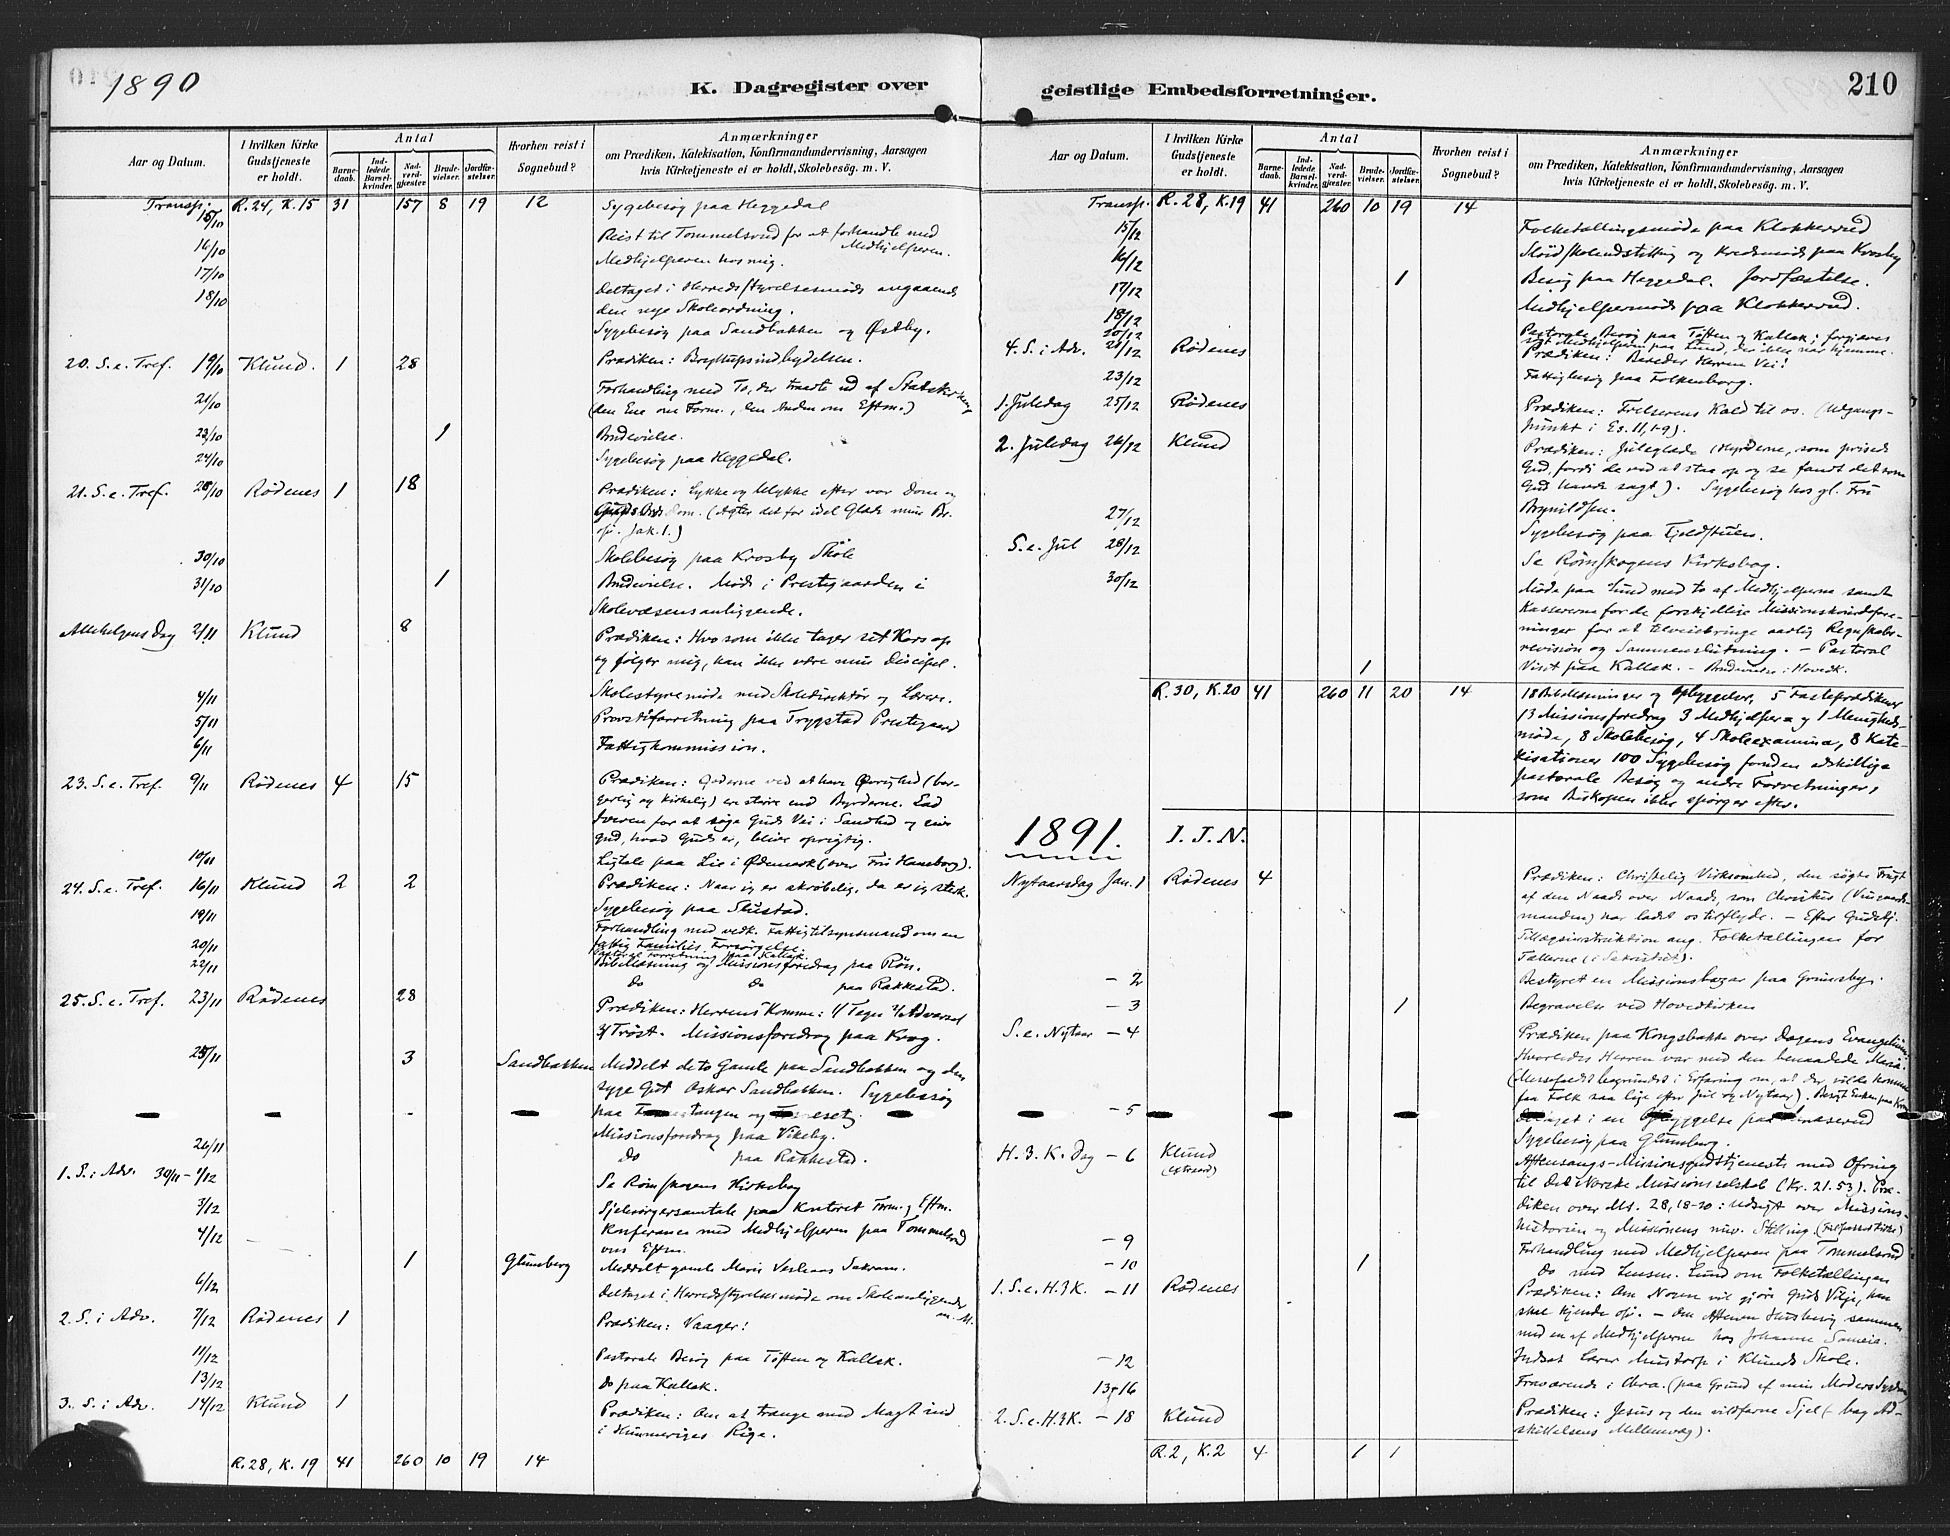 1890
K. Dagregister over
Aar og Datum.
I hvilken Kirke Gudstjeneste er holdt.
Antal
Barnedaab.
Indledede Barselkvinder.
Nadverdgjester
Brudevielser.
Jordfæstelser.
Hvorhen reist i Sognebud?
Anmærkninger
om Prædiken, Katekisation, Konfirmandundervisning, Aarsagen
hvis Kirketjeneste ei er holdt, Skolebesög. m. V.
Transp. R. 24, K. 15 31 157 8 19 12
15/10 Sygebesøg paa Heggedal
16/10 Reist til Tommelsrud for at forhandle med Medhjelperen.
17/10 Medhjelperen hos mig.
18/10 Deltaget i Herredsstyrelsesmøde angaaende
den nye Skoleordning.
Sygebesøg paa Sandbakken og Østby.
20. S. e. Tref. 19/10 Klund. 1 28 Prædiken: Bryllupsindbydelsen.
21/10 Forhandling med To, der traadte ud af Statskirken
(den Ene om Form., den Anden om Eftm.)
23/10 1 Brudevielse.
24/10 Sygebesøg paa Heggedal.
21. S. e. Tref. 28/10 Rödenes 1 18 Prædiken: Lykke og Ulykke efter vor Dom og
Guds Dom. (Agter det for idel Glæde mine Br.
osv. Jak. 1.)
30/10 Skolebesøg paa Krosby Skole
31/10 1 Brudevielse. Møde i Prestgaarden i
Skolevæsensanliggende.
Allehelgens Dag 2/11 Klund 8 Prædiken: Hvo som ikke tager sit Kors op
og følger mig, kan ikke være min Discipel.
4/11 Skolestyremøde med Skoledirektør og Lærere.
5/11 Provstiforretning paa Trygstad Prestegaard
6/11 Fattigkommission.
23. S. e. Tref. 9/11 Rödenes 4 15 Prædiken: Goderne ved at have Øvrighed (bor-
gerlig og kirkelig) ere større end Byrderne. Lad
Iveren for at søge Guds Vei i Sandhed og give
Gud, hvad Guds er, blive oprigtig.
10/11 Ligtale paa Lie i Ødemark (over Fru Hansborg).
24. S. e. Tref. 16/11 Klund 2 2 Prædiken: Naar jeg er skrøbelig, da er jeg stærk.
19/11 Sygebesøg paa Slustad.
20/11 Forhandling med vedk. Fattigtilsynsmand om en
fattig Families Forsørgelse.
22/11 Bibellæsning og Missionsforedrag paa Røn.
do do paa Rakkestad.
25. S. e. Tref. 23/11 Rödenes 28 Prædiken: Herrens Komme: 1/ Tegn 2/ Advarsel
3/ Trøst. Missionsforedrag paa Krog.
25/11 3 Sandbakken Meddelt de to Gamle paa Sandbakken og den
syge Gut Oskar Sandbakken. Sygebesøg
26/11 Missionsforedrag paa Vikeby.
do paa Rakkestad.
1. S. i Adv. 30/11 - 1/12 Se Rømskogens Kirkebog
3/12 Sjelesørgersamtale paa Kontoret Form. og Eftm.
4/12 Konference med Medhjelperen paa Tommelsrud
om Eftm.
1 Glumberg Meddelt gamle Marie Sakram.
6/12 Deltaget i Herredsstyrelsesmøde om Skoleanliggender m. M.
2. S. i Adv. 7/12 Rödenes 1 Prædiken: Vaager!
11/12 Pastorale Besøg paa Tøften og Kallak.
13/12 do paa Kallak.
3. S. i Adv. 14/12 Klund 1 Prædiken: Om at trænge med Magt ind
i Himmeriges Rige.
R. 28, K. 19 41 260 10 19 14
geistlige Embedsforretninger.
210
Aar og Datum.
I hvilken Kirke Gudstjeneste er holdt.
Antal
Barnedaab.
Indledede Barselkvinder.
Nadverdgjester
Brudevielser.
Jordfæstelser.
Hvorhen reist i Sognebud?
Anmærkninger
om Prædiken, Katekisation, Konfirmandundervisning, Aarsagen
hvis Kirketjeneste ei er holdt, Skolebesög. m. V.
Transp. R. 28, K. 19 41 260 10 19 14
15/12 Folketællingsmøde paa Klokkerud
16/12 Sløidskoleudstilling og Kredsmøde paa Krosby
17/12 1 Besøg paa Heggedal. Jordfæstelse.
18/12 Medhjelpermøde paa Klokkerud.
20/12 Pastorale Besøg paa Tøften og Kallak; forgjæves
søgt Medhjelperen paa Lund, der ikke var hjemme.
4. S. i Adv. 21/12 Rödenes Prædiken: Bereder Herren Vei!
23/12 Fattigbesøg paa Folkenborg.
1. Juledag 25/12 Rödenes Prædiken: Frelserens Kald til os. (Udgangs-
punkt i Es. 11, 1-9).
2. Juledag 26/12 Klund Prædiken: Juleglæde (Hyrderne, som prisede
Gud, fordi de ved at staa op og se fandt det som
Gud havde sagt). Sygebesøg hos gl. Fru
Brynildsen.
27/12 Sygebesøg paa Fjeldstuen.
S. e. Jul 28/12 Se Rømskogens Kirkebog.
30/12 Møde paa Lund med to af Medhjelperne samt
Kassererne for de forskjellige Missionskvindefore-
ninger for at tilveiebringe aarlig Regnskabs-
revision og Sammenslutning. - Pastoral
1 Visit paa Kallak. - Brudevielse i Hovedk.
R. 30, K. 20 41 260 11 20 14 18 Bibellæsninger og Opbyggelser, 5 Fasteprædikener
13 Missionsforedrag 3 Medhjelper og 1 Menigheds-
møde, 8 Skolebesøg, 4 Skoleexamina, 8 Kate-
kisationer 100 Sygebesøg foruden adskillige
pastorale Besøg og andre Forretninger,
som Biskopen ikke spørger efter.
1891. I. J. N.
Nytaarsdag Jan. 1 Rödenes 4 Prædiken: Christelig Virksomhed, den søgte Frugt
af den Naade over Naade, som Christus (Viingaards-
manden) har ladet os tilflyde. - Efter Gudstj.
Tillægsinstruktion ang. Folketællingen for
Tællerne (i Sakristiet).
- 2 Bestyret en Missionsbazar paa Grimsby.
- 3 1 Begravelse ved Hovedkirken
S. e. Nytaar - 4 Prædiken paa Kongsbakke over Dagens Evangelium:
Hvorledes Herren var med den benaadede Maria.
(Messefald begrundet i Erfaring om, at der vilde komme
faa Folk saa lige efter Jul og Nytaar).
- 5 Deltaget i en Opbyggelse paa
Sygebesøg paa Glumberg.
H. 3. K. Dag - 6 Klund (extraord) Aftensangs-Missionsgudstjeneste med Ofring
til Det Norske Missionsselskab (Kr. 21.53). Præ-
diken over Mt. 28, 18-20: Udsigt over Missions-
historien og Missionens nuv. Stilling (Fuldpakket Kirke)
- 9 Forhandling med Medhjelperen paa Tommelsrud
- 10 1 Do med Lensm. Lund om Folketællingen
1. S. e. H. 3 K. - 11 Rödenes Prædiken: Om Nogen vil gjøre Guds Vilje, han
skal kjende osv. - Om Aftenen Husbesøg sammen
med en af Medhjelperne hos Johanne Sameia.
- 12 Indsat Lærer Mustorp i Klunds Skole.
13-16 Fraværende i Chra. (paa Grund af min Moders Sygdom
2. S. e. H. 3 K. - 18 Klund Prædiken: Jesus og den vildfarne Sjel (- bag Ad-
skillelsens Mellemvæg).
R. 2, K. 2 4 1 1